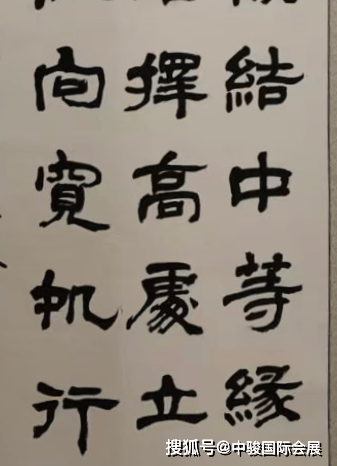 結中等緣
擇高處立
向寬処行
搜狐号@中骏国际会展